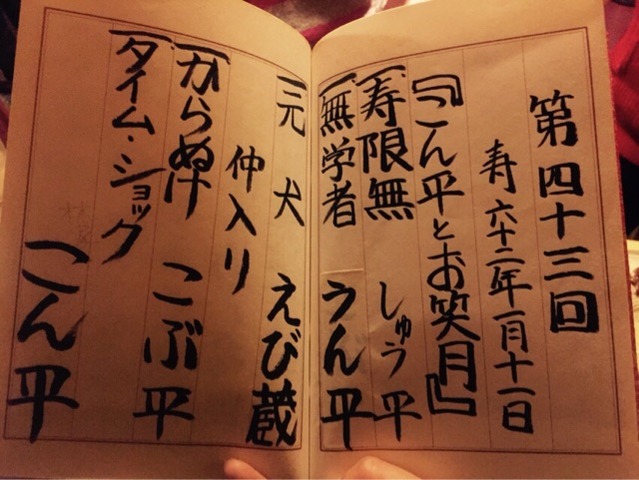 第四十三回
寿 六十二年一月十一日
『こん平とお笑月』
一、寿限無 しゅう平
一、無学者 うん平
一、元犬 えび蔵
仲入り
一、からぬけ こぶ平
一、タイム・ショック
こん平